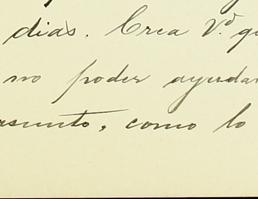 dias. Crea V.d qu
no poder ayudar
asunto, como lo